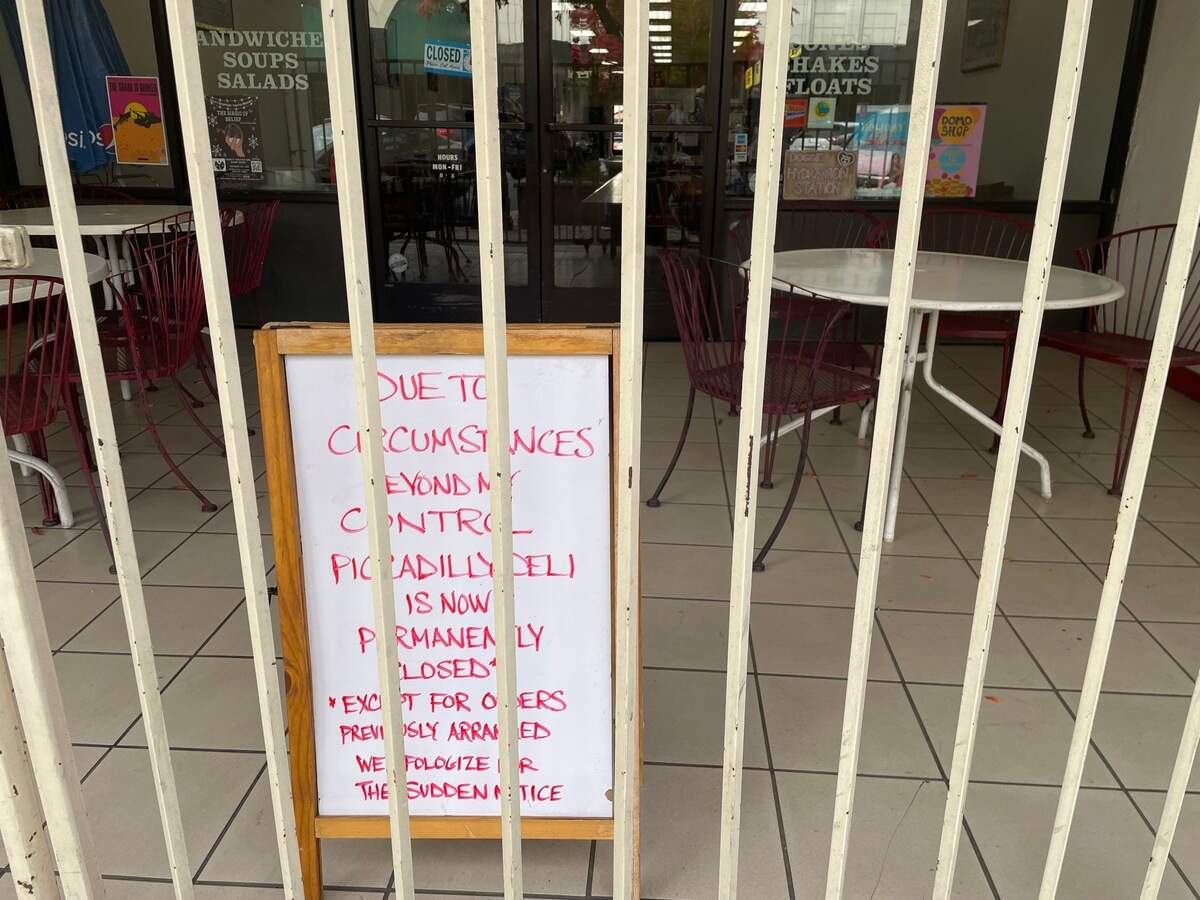 SANDWICHES
SOUPS
SALADS
CLOSED
HOURS
MON-FRI
SHAKES
FLOATS
DOMO
SHOP
DOGGIE
HYDRATION
STATION
DUE TO
CIRCUMSTANCES
BEYOND MY
CONTROL
PICCADILLY DELI
IS NOW
PERMANENTLY
CLOSED*
*EXCEPT FOR ORDERS
PREVIOUSLY ARRANGED
WE APOLOGIZE FOR
THE SUDDEN NOTICE